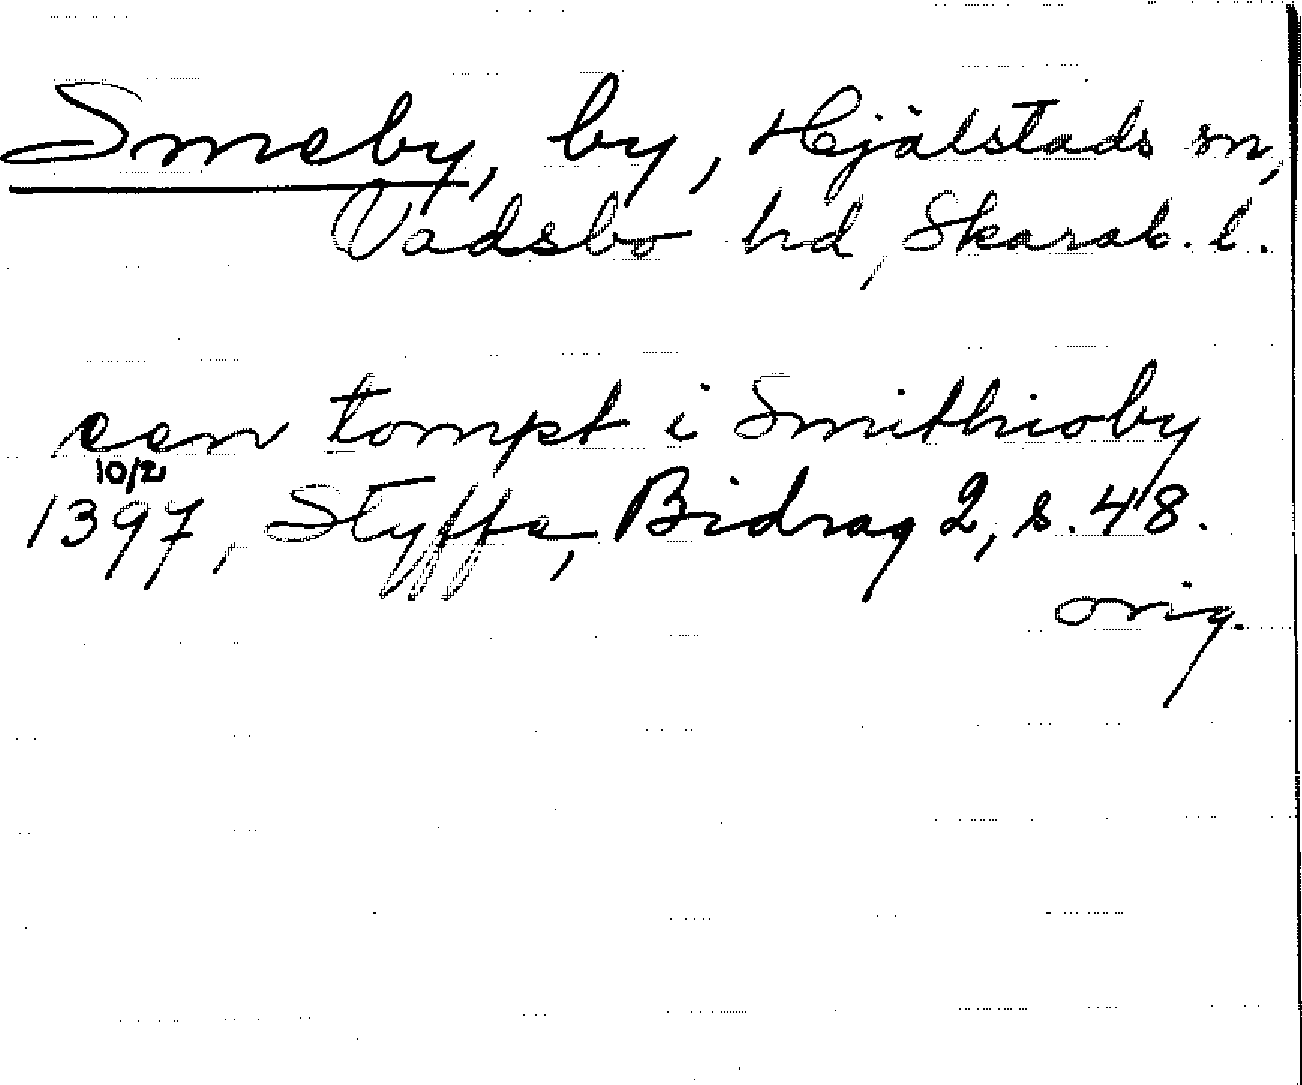 Smeby, by, Hjälstads sn,
Vadsbo hd, Skarab. l.
een tompt i Smithioby
10/2
1397, Styffe, Bidrag 2, s. 48.
orig.